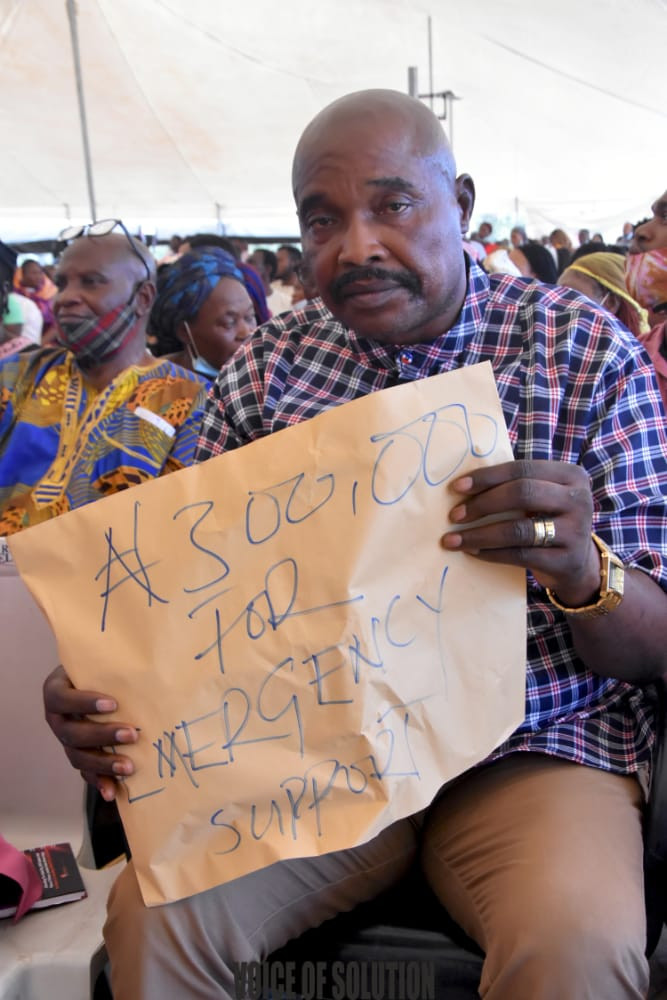 ₦300,000
FOR
EMERGENCY
SUPPORT
VOICE OF SOLUTION